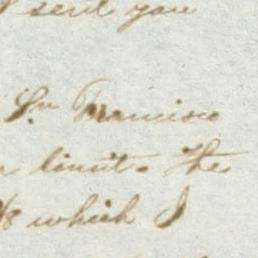 sent you
Sn Francisco
limit. The
which I